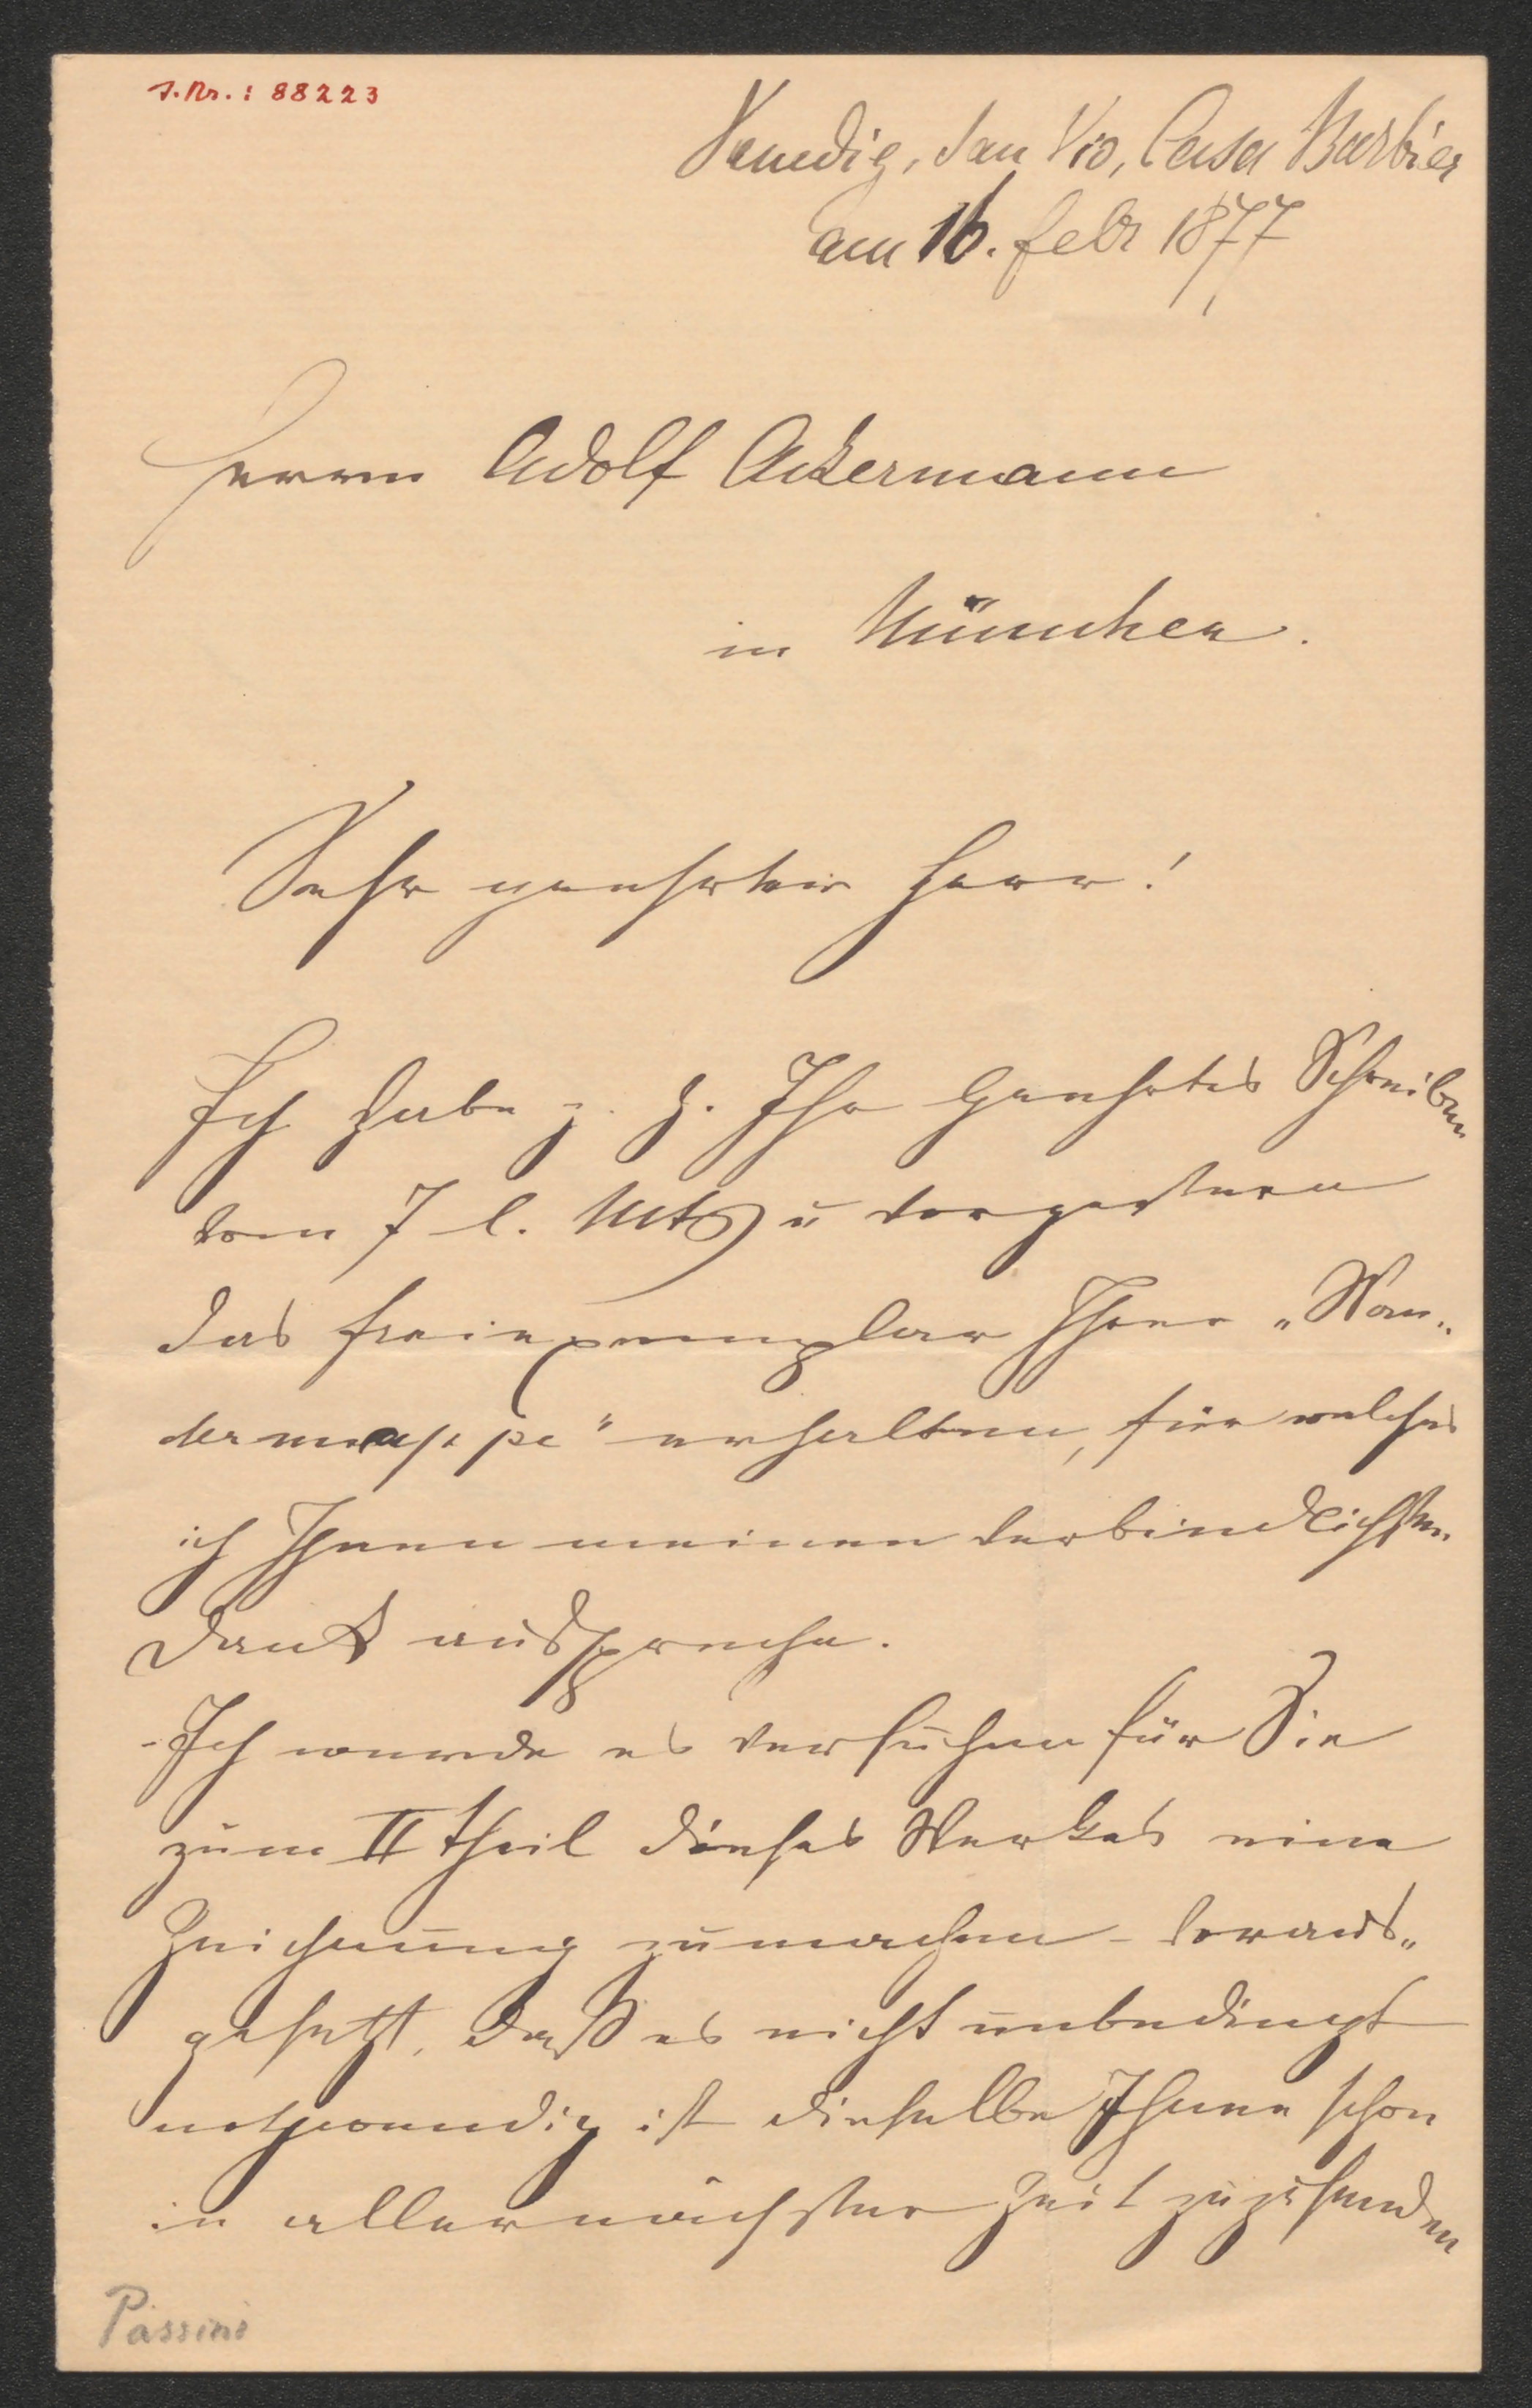 J. Nr.: 88223
Venedig, San Vio, Casa Barbier
am 16. Febr 1877
Herrn Adolf Ackermann
in München.
Sehr geehrter Herr!
Ich habe z. Z. Ihr geehrtes Schreiben
vom 7 l. Mts u vorgestern
das Freiexemplar Ihrer „Wan„
dermappe" erhalten, für welches
ich Ihnen meinen verbindlichsten
Dank ausspreche.
- Ich werde es versuchen für Sie
zum II Theil dieses Werkes eine
Zeichnung zu machen - voraus„
gesetzt, daß es nicht unbedingt
nothwendig ist dieselbe Ihnen schon
in allernächster Zeit zuzusenden
Passini